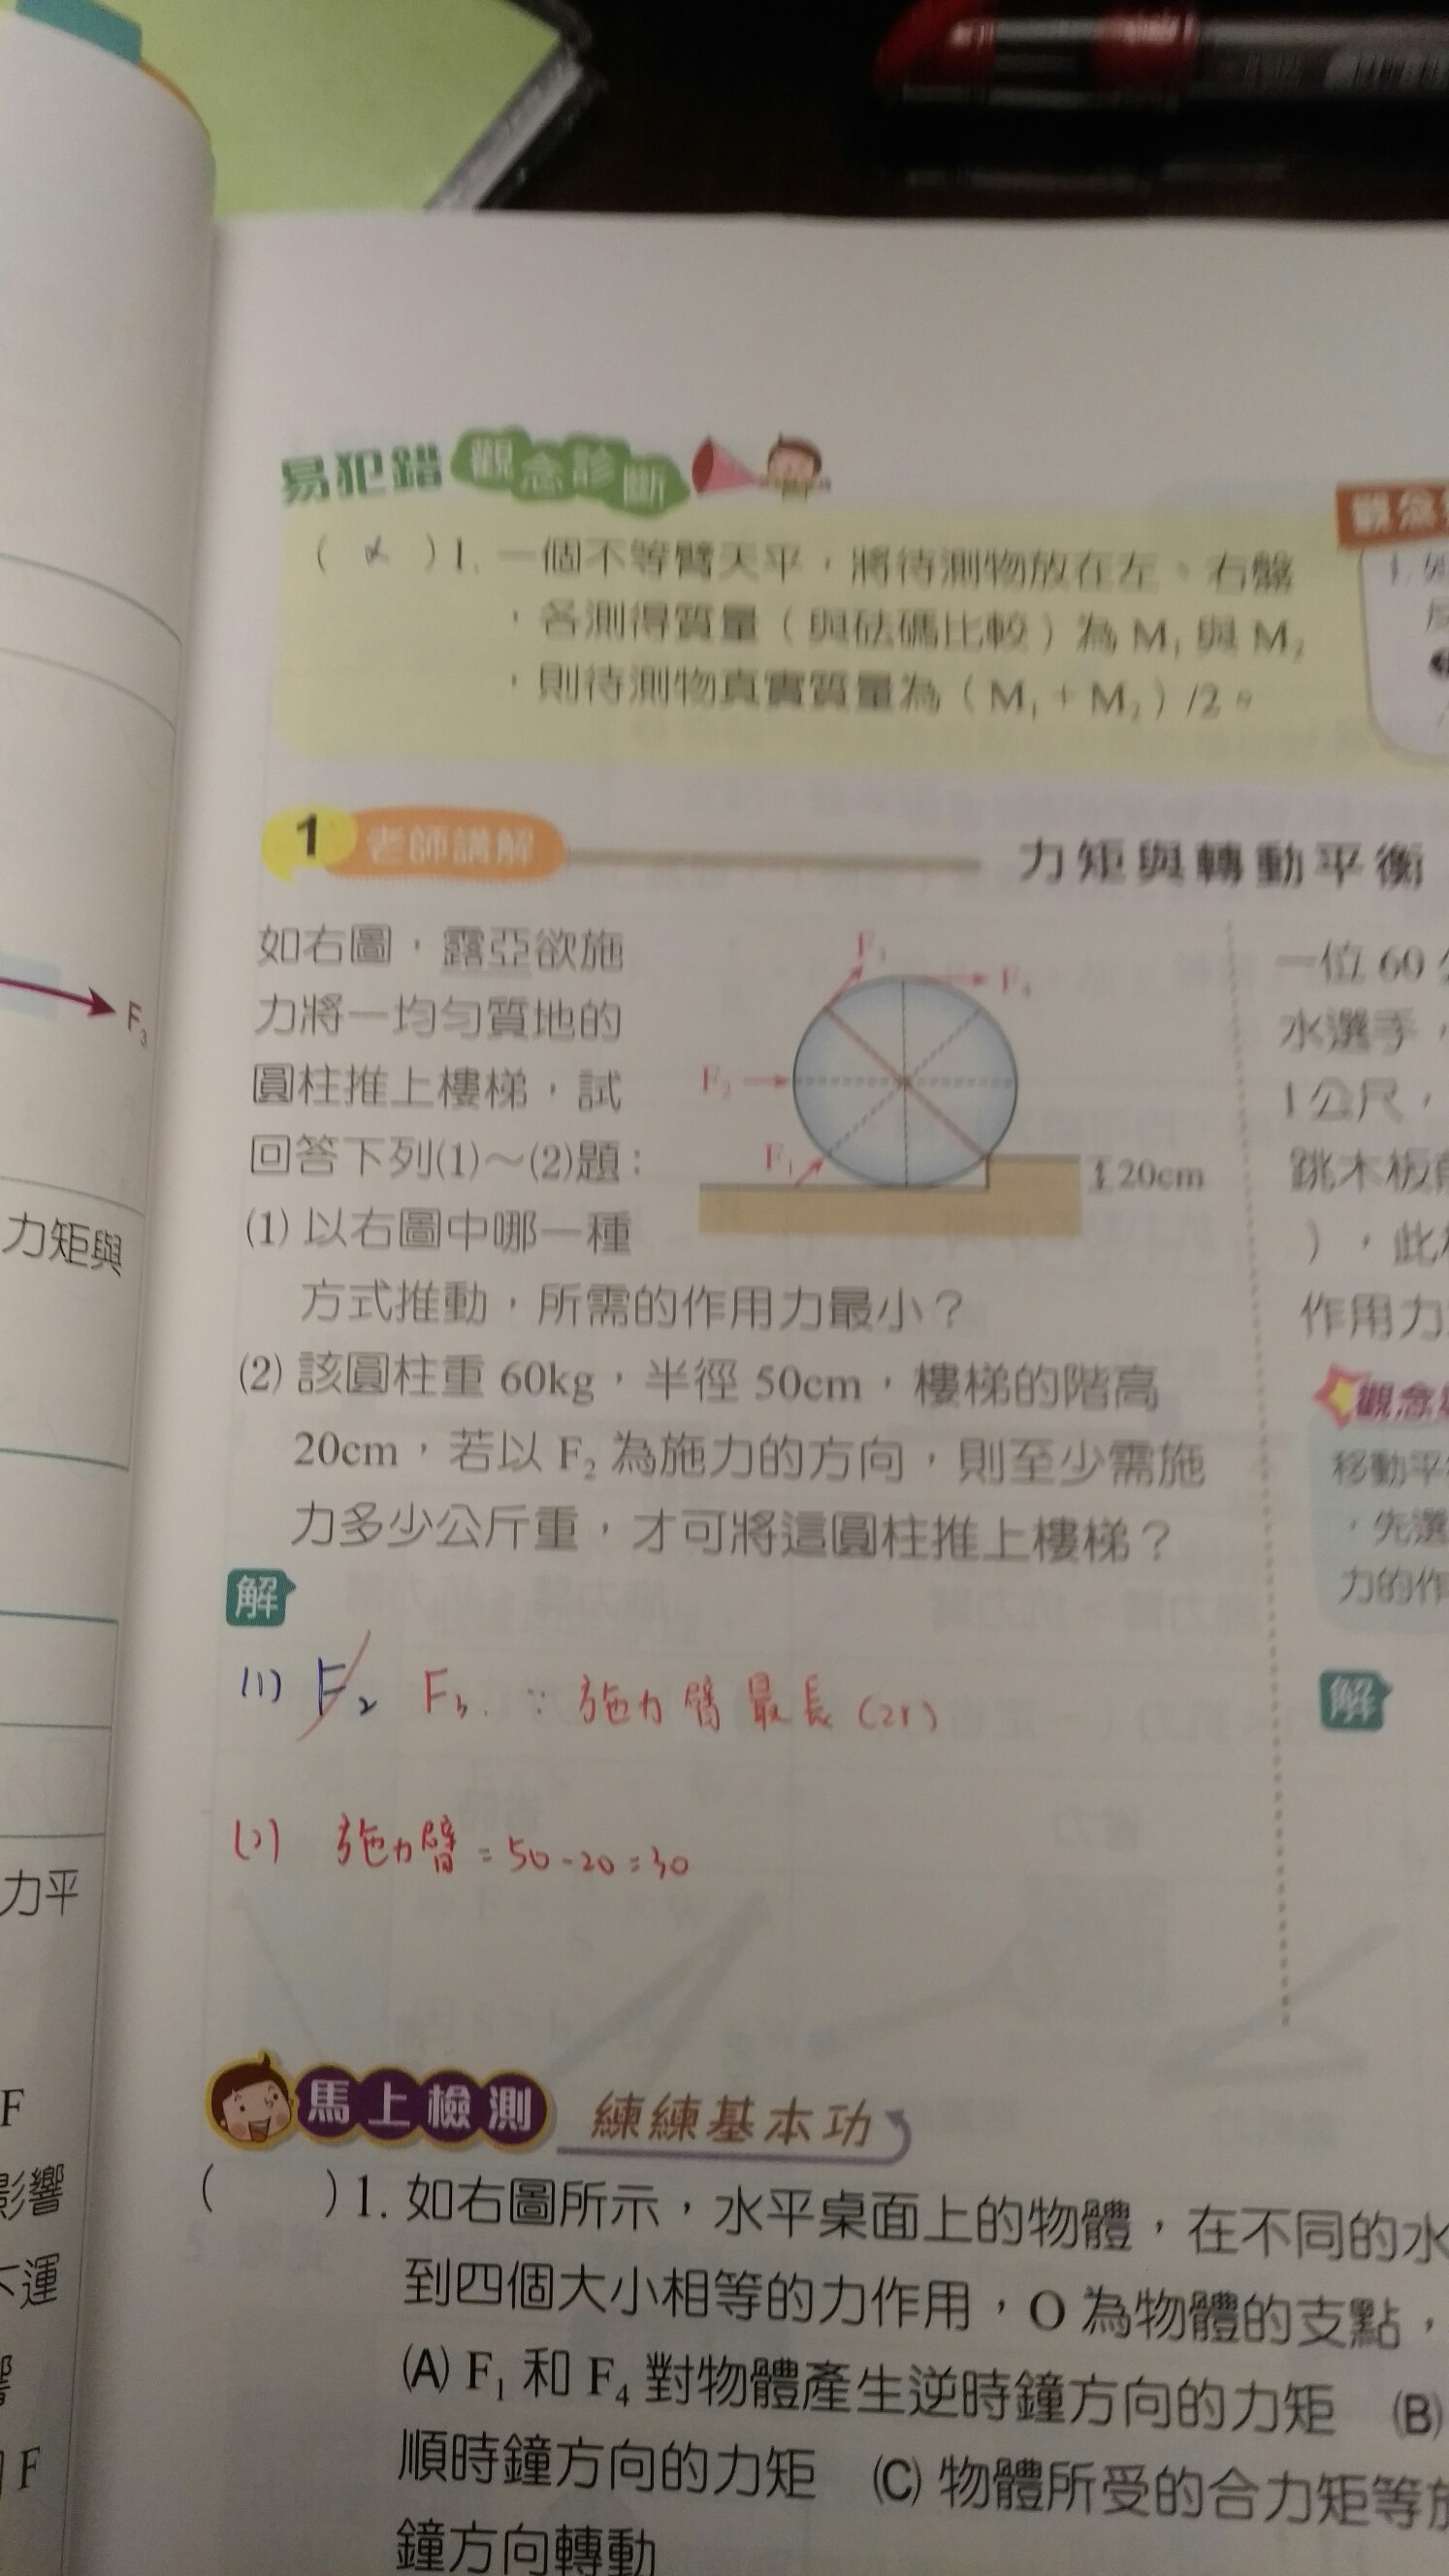 易犯錯 觀念診斷
( × ) 1. 一個不等臂天平，將待測物放在左、右盤
，各測得質量（與砝碼比較）為 M₁ 與 M₂
，則待測物真實質量為（M₁ + M₂）/2。
觀念
1.
1 老師講解
力矩與轉動平衡
如右圖，露亞欲施
力將一均勻質地的
圓柱推上樓梯，試
回答下列(1)～(2)題：
(1) 以右圖中哪一種
方式推動，所需的作用力最小？
(2) 該圓柱重 60kg，半徑 50cm，樓梯的階高
20cm，若以 F₂ 為施力的方向，則至少需施
力多少公斤重，才可將這圓柱推上樓梯？
F₃
F₄
F₂
F₁
20cm
解
(1) F₂ F₃. ∵ 施力臂最長 (2r)
(2) 施力臂 = 50-20=30
馬上檢測 練練基本功
( ) 1. 如右圖所示，水平桌面上的物體，在不同的水
到四個大小相等的力作用，O 為物體的支點，
(A) F₁ 和 F₄ 對物體產生逆時鐘方向的力矩 (B)
順時鐘方向的力矩 (C) 物體所受的合力矩等於
鐘方向轉動
一位 60
水選手，
1 公尺，
跳木板
），此
作用力
觀念
移動平
，先選
力的作
解
F₃
力矩與
力平
F
影響
不運
響
F